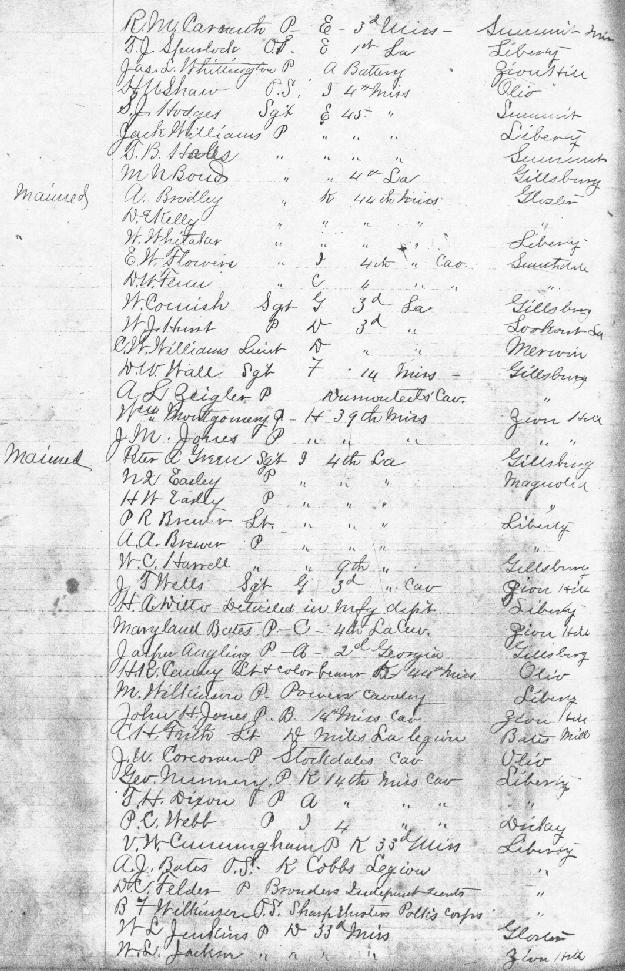 R. M. Carsouth P E - 3d Miss - Summit Miss
T. J. Spurlock O.S. E 1st La Liberty
Jas. L. Whittington P A Battery Zion Hill
Shaw O.S. I 4th Miss Olio
S. J. Hodges Sgt E 45 " Summit
Jack Williams P " " " " Liberty
T. B. Hales " " " " Summit
M N Bond " " 4th La Gillsburg
Maimed A. Bradley " K 44th Miss Gloster
" D. E. Kelly " " " " "
W. Whitaker " " " " Liberty
E. W. Flowers " I 4th " Cav Smithdale
D. W. " C " " " "
W. Cornish Sgt G 3d La Gillsburg
W. J. Hurst P D 3d " Lookout La
C. W. Williams Lieut D " " Merwin
D. W. Wall Sgt F 14 Miss - Gillsburg
A. L. Zeigler P Cav. "
Wm Montgomery P - H 39th Miss Zion Hill
J. M. Jones P " " " " "
Maimed Peter L Green Sgt I 4th La Gillsburg
Easley P " " " Magnolia
H W Easly P " " " "
P R Brewer Lt. " " " Liberty
A. A. Brewer P " " " "
W. C. Harrell " " 9th " Gillsburg
J. T. Wells Sgt G 3d " Cav Zion Hill
H. A. Witto Detailed in Mfg depot Liberty
Maryland Bates P - C - 4th La Cav. Zion Hill
Jasper Angling P - A - 2d Georgia Gillsburg
H. R. Lt & color bearer K 44th Miss Olio
M. Wilkinson P. Powers Cavalry Liberty
John H Jones P. B. 14th Miss Cav Zion Hill
C H Frith Lt D Miles La legion Bates Mill
J. W. Corcoran P Stockdales Cav Olio
Geo. Nunnery, P K 14th Miss Cav Liberty
T. H. Dixon P A " " " " "
P. C. Webb P I 4 " " Dickey
V. W. Cunningham P K 33d Miss Liberty
A. J. Bates O.S. K Cobbs Legion "
D. C. Felder P Independent Scouts "
B F Wilkinson O.S. Sharpshooters Polks Corps "
W L Jenkins P D 33d Miss Gloster
W. L. Jackson " " " " Zion Hill